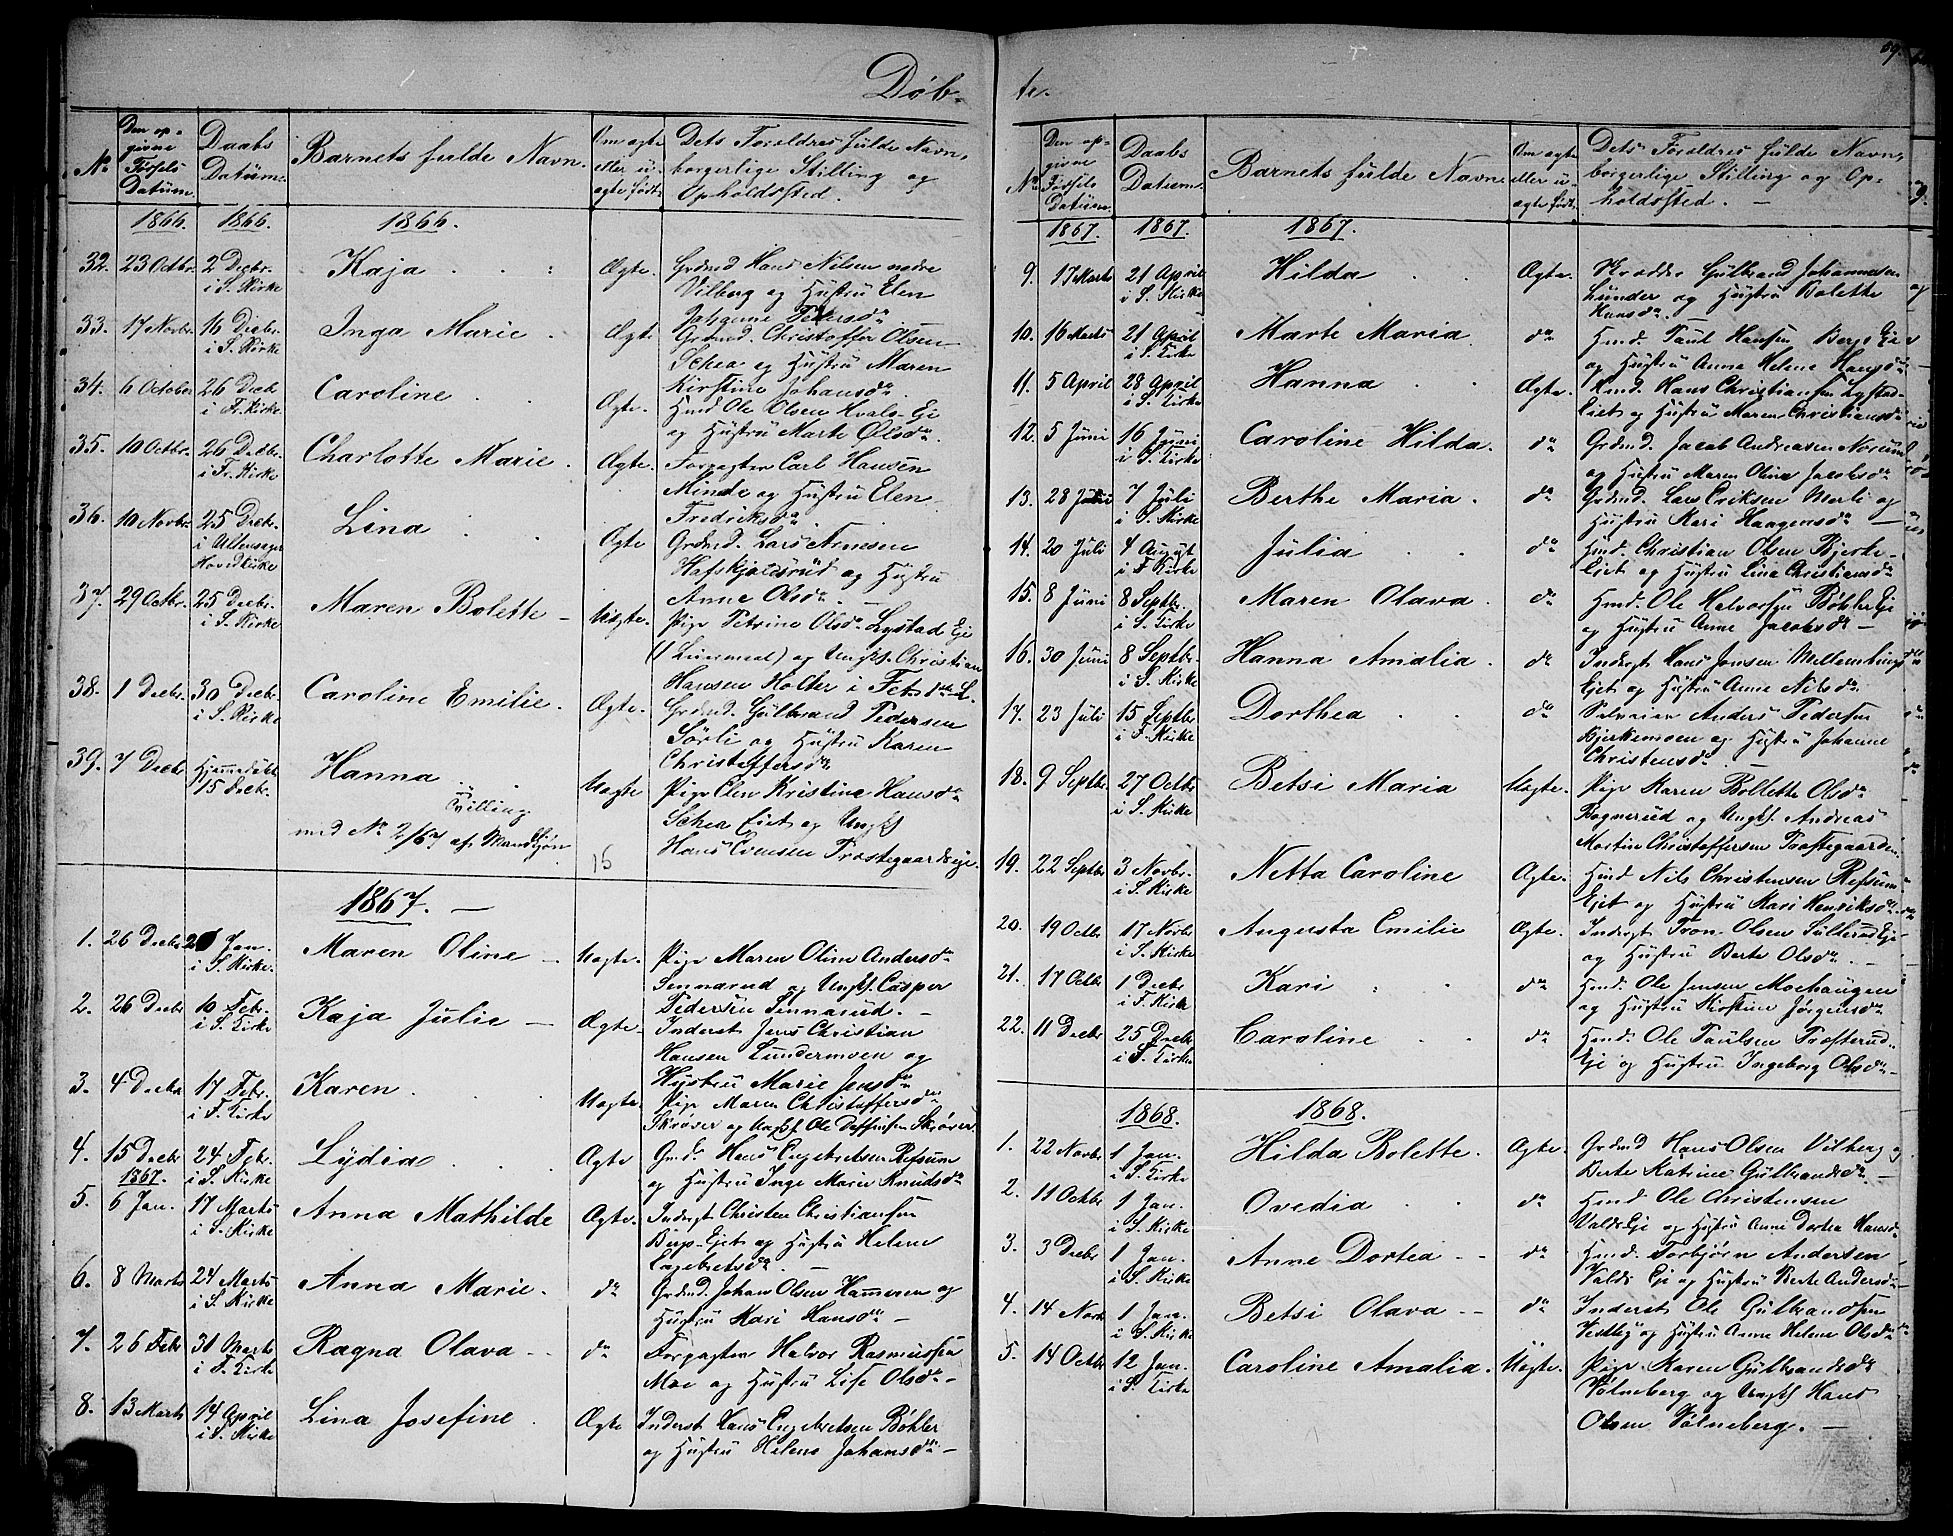 59.
Døb-
te.
No
Den op-
givne
Fødsels
Datum
Daabs
Datum
Barnets fulde Navn.
Om ægte
eller u-
ægte født.
Dets Forældres fulde Navn,
borgerlige Stilling og
Opholdssted.
1866. 1866. 1866.
32. 23 Octbr. 2 Decbr. Kaja Ægte. Grdmd Hans Nilsen nedre
i S. Kirke Vilberg og Hustru Elen
Johanne Pedersdr
33. 17 Novbr. 16 Decbr. Inga Marie Ægte Grdmd. Christoffer Olsen
i S. Kirke Schea og Hustru Maren
Kirstine Johansdr
34. 6 October 26 Decbr. Caroline Ægte. Hmd Ole Olsen Hvals-Eje
i Fr. Kirke og Hustru Marte Olsdr.
35. 10 Octbr. 26 Decbr. Charlotte Marie Ægte. Forpagter Carl Hansen
i Fr. Kirke Minde og Hustru Elen
Fredriksdr
36. 10 Novbr. 25 Decbr. Lina Ægte Grdmd. Lars Arnesen
i Ullensager Hafskjoldsrud og Hustru
Hovedkirke Anne Olsdr.
37. 29 Octbr. 25 Decbr. Maren Bolette Uægte. Pige Petrine Olsdr Lystad Eje
i S. Kirke og Ungkf. Christian
Hansen Holter i Fet
38. 1 Decbr. 30 Decbr. Caroline Emilie. Ægte. Grdmd. Gulbrand Pedersen
i S. Kirke Sørli og Hustru Karen
Christoffersdr
39. 7 Decbr Hjemmedøbt Hanna Uægte Pige Elen Kristine Hansdr
15 Decbr. Tvilling Schea Eiet og Ungkf
med No 2/67 af Mandkjøn 15 Hans Evensen Trøstegaardseje.
1867.
1. 26 Decbr 20 Jan. Maren Oline Uægte. Pige Maren Oline Andersdr
i S. Kirke. Sennerud og Ungkf. Casper
Pedersen Sennerud.
2. 26 Decbr 10 Febr. Kaja Julie Ægte. Inderst Jens Christian
i S. Kirke Hansen Lundermoen og
Hustru Marie Jensdr
3. 4 Decbr 17 Febr. Karen Uægte. Pige Maren Christoffersdr
i F. Kirke Skrøver og Ungkf. Ole Skrøver
4. 15 Decbr 24 Febr. Lydia Ægte Gmd. Hans Engebretsen Refsum
1867. i S. Kirke og Hustru Inge Marie Knudsdr
5. 6 Jan. 17 Marts Anna Mathilde Ægte. Inderst Christen Christiansen
i S. Kirke Ejet og Hustru Helene
Engebretsdr.
6. 8 Marts 24 Marts Anna Marie. dn Grdmd. Johan Olsen Hammeren og
i S. Kirke Hustru Mari Hansdr
7. 26 Febr 31 Marts Ragna Olava dn Forpagter Halvor Rasmussen
i F. Kirke Moe og Hustru Lise Olsdr
8. 13 Marts 14 April Lina Josefine Ægte Inderst Hans Engebretsen Bøhler
i S. Kirke og Hustru Helene Johansdr
No
Den op-
givne
Fødsels
Datum
Daabs
Datum
Barnets fulde Navn
Om ægte
eller u-
ægte født.
Dets Forældres fulde Navn,
borgerlige Stilling og Op-
holdssted.
1867. 1867. 1867.
9. 17 Marts 21 April Hilda Ægte. Gulbrand Johannesen
i S. Kirke Lunder og Hustru Bolette
Hansdr.
10. 16 Marts 21 April Marte Maria dn Hmd. Paul Hansen Berg Eje
i S. Kirke og Hustru Anne Helene Hansdr
11. 5 April 28 April Hanna Ægte. Hmd. Hans Christiansen Lystad-
i S. Kirke Eiet og Hustru Maren Christiansdr
12. 5 Juni 16 Juni Caroline Hilda. dn Grdmd. Jacob Andreasen Nordum
i S. Kirke og Hustru Maren Oline Jacobsdr
13. 28 Juni 7 Juli Berthe Maria dn Grdmd. Lars Eriksen Merli og
i S. Kirke Hustru Kari Haagensdr
14. 20 Juli 4 August Julia dn Hmd. Christian Olsen Bjerke-
i F Kirke Eiet og Hustru Lina Christiansdr
15. 8 Juni 8 Septbr. Maren Olava dn Hmd. Ole Halvorsen Bøhler Eje
i S. Kirke og Hustru Anne Jacobsdr
16. 30 Juni 8 Septbr. Hanna Amalia dn Inderst Hans Jensen
i S. Kirke Ejet og Hustru Anne Nilsdr.
17. 23 Juli 15 Septbr Dorthea dn Selveier Anders Pedersen
i F. Kirke Bjerkemoen og Hustru Johanne
Christensdr
18. 9 Septbr. 27 Octbr Betsi Maria Uægte. Pige Karen Bollette Olsdr
i S. Kirke Bognerud og Ungkf. Andreas
Martin Christoffersen
19. 22 Septbr 3 Novbr. Netta Caroline Ægte. Hmd Nils Christensen Refsum
i S. Kirke Ejet og Hustru Mari Henriksdr.
20. 19 Octbr 17 Novbr. Augusta Emilie Ægte. Inderst Tron Olsen
i S. Kirke og Hustru Berte Olsdr.
21. 17 Octbr 1 Decbr Kari dn Hmd. Ole Jensen Moehaugen
i F. Kirke og Hustru Kirstine Jørgensdr
22. 11 Decbr 25 Decbr Caroline dn Hmd. Ole Paulsen
i S. Kirke Eje og Hustru Ingeborg Olsdr
1868. 1868.
1. 22 Novbr 1 Jan. Hilda Bolette Ægte. Grdmd Hans Olsen Vilberg og
i S. Kirke Berte Katrine Gulbrandsdr
2. 11 Octbr 1 Jan. Ovedia dn Hmd. Ole Christensen
i S. Kirke Valds Eje og Hustru Anne Dortea Hansdr
3. 3 Decbr 1 Jan. Anne Dortea dn Hmd. Torbjørn Andersen
i S. Kirke Valds Eje og Hustru Berte Andersdr
4. 14 Novb 1 Jan. Betsi Olava dn Inderst Ole Gulbrandsen
i S. Kirke Vestby og Hustru Anne Helene Olsdr
5. 14 Octbr 12 Jan. Caroline Amalia. Uægte. Pige Karen Gulbrandsdr
i S. Kirke Vølneberg og Ungkf Hans
Olsen Vølneberg.